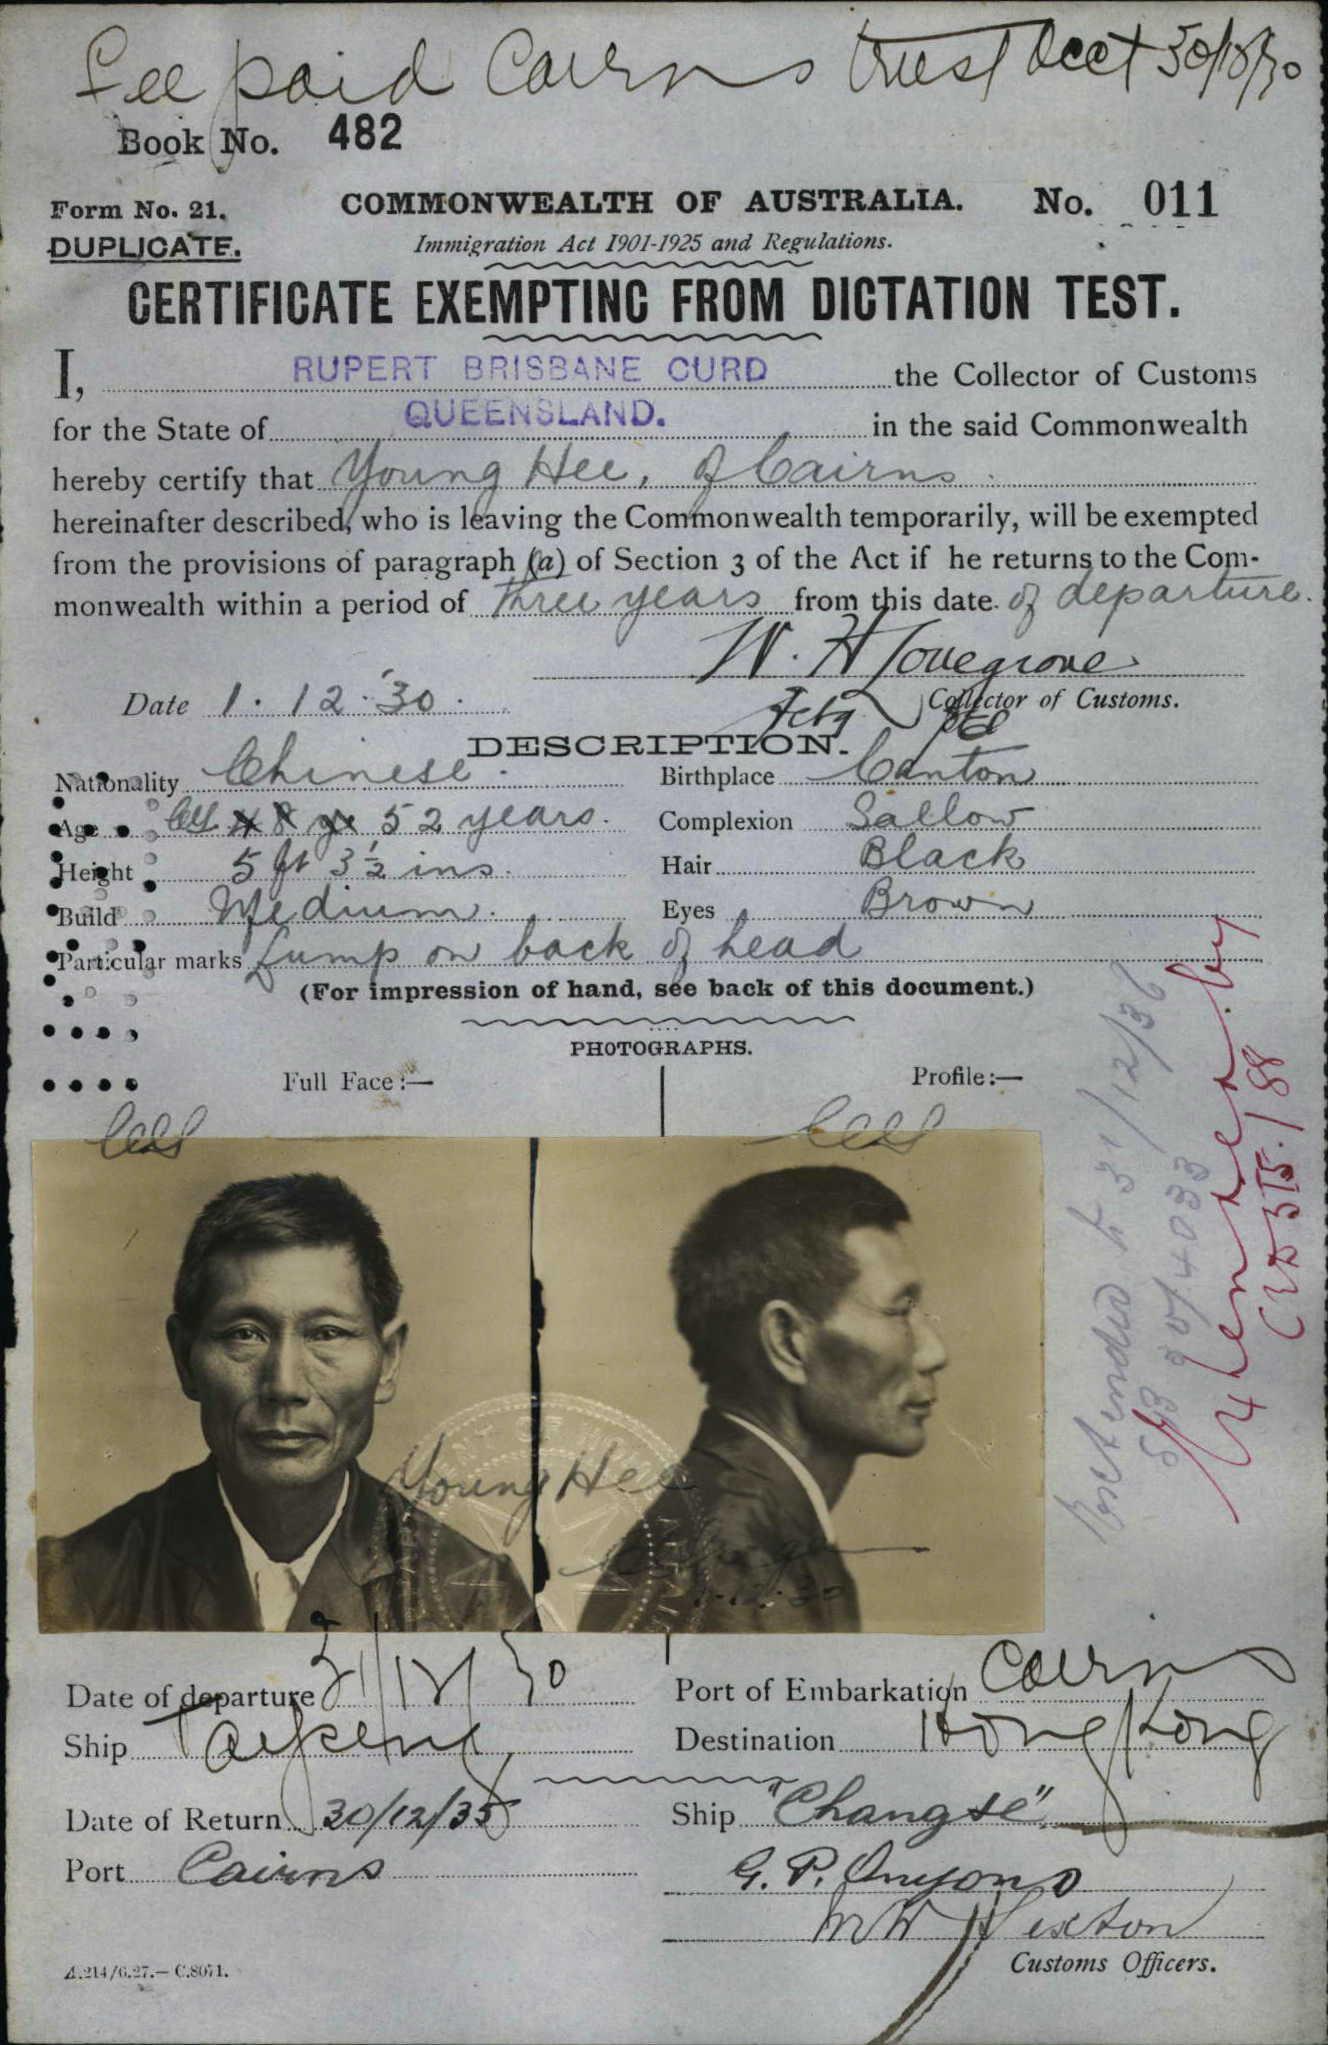 Fee paid Cairns Trust Acct 30/10/30
Book No. 482
Form No. 21. COMMONWEALTH OF AUSTRALIA. No. 011
DUPLICATE. Immigration Act 1901-1925 and Regulations.
CERTIFICATE EXEMPTING FROM DICTATION TEST.
I, RUPERT BRISBANE CURD the Collector of Customs
for the State of QUEENSLAND. in the said Commonwealth
hereby certify that Young Hee, of Cairns
hereinafter described, who is leaving the Commonwealth temporarily, will be exempted
from the provisions of paragraph (a) of Section 3 of the Act if he returns to the Com-
monwealth within a period of Three years from this date of departure.
W. H Lovegrove
Date 1.12.30. Actg Collector of Customs.
DESCRIPTION.
Nationality Chinese. Birthplace Canton
Age 52 years. Complexion Sallow
Height 5 ft 3½ ins. Hair Black
Build Medium. Eyes Brown
Particular marks Lump on back of head
(For impression of hand, see back of this document.)
PHOTOGRAPHS.
Full Face:— Profile:—
Young Hee
1.12.30
Extended to 31/12/36
Date of departure 31/12/30 Port of Embarkation Cairns
Ship Taiping Destination Hong Kong
Date of Return 30/12/35 Ship "Changte"
Port Cairns G. P. Onyons
M W Sexton
Customs Officers.
A.214/6.27.—C.8071.